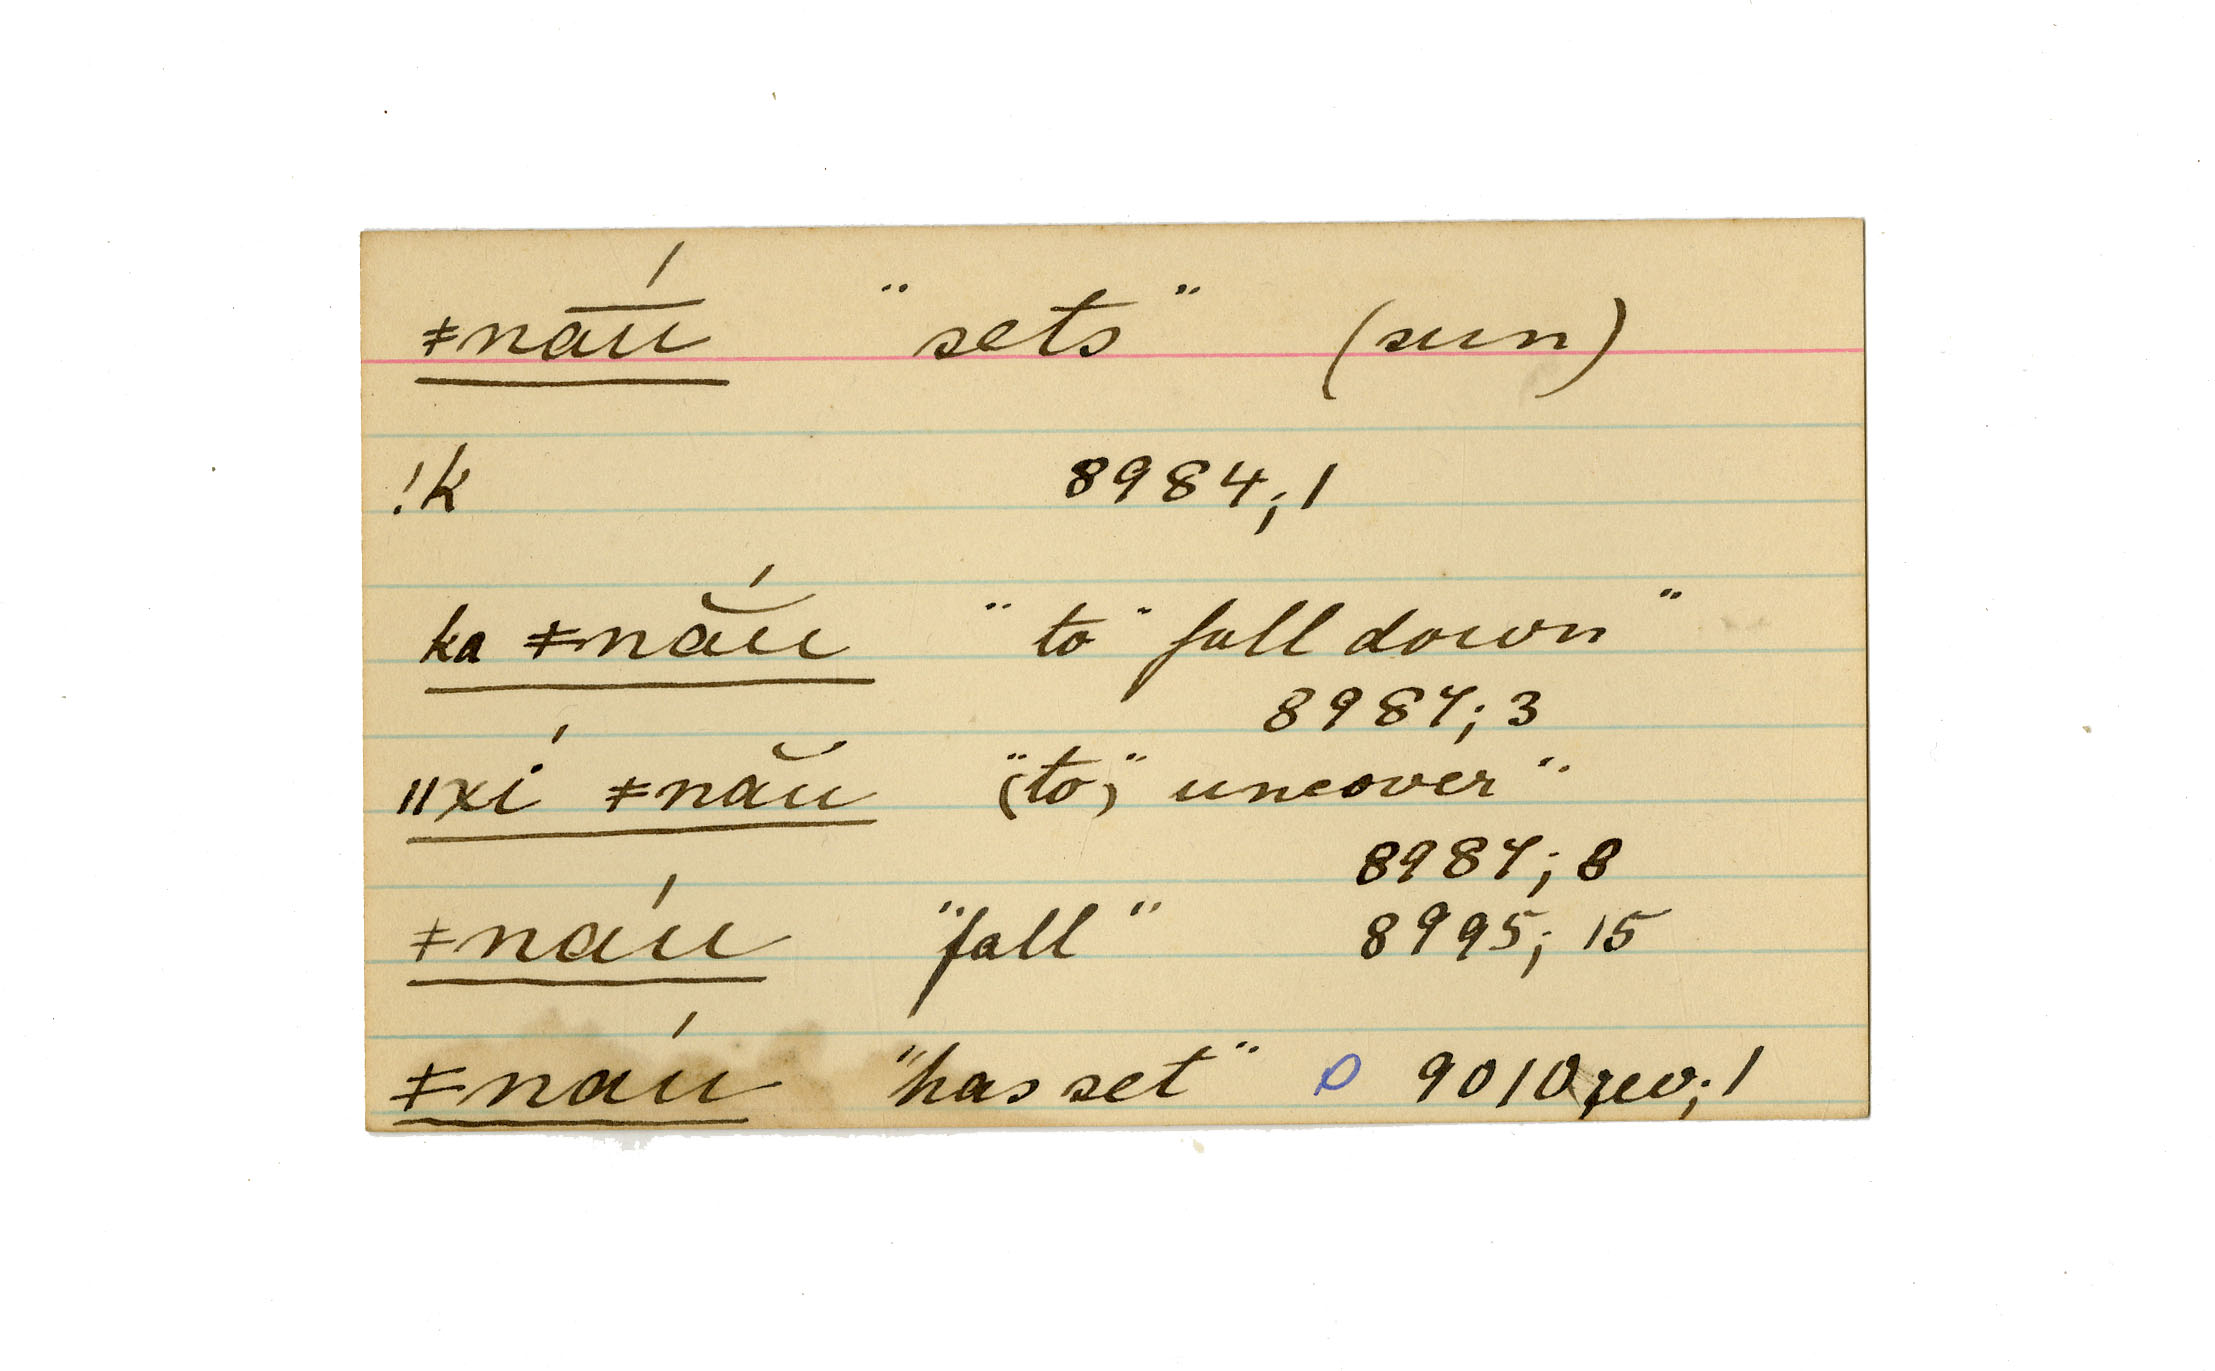 ǂnāú "sets" (sun)
!k 8984;1
ka ǂnắu "to" fall down"
8987;3
ǁxí ǂnău "(to)" uncover"
8987;8
ǂnáu "fall" 8995;15
ǂnaú "has set" 9010 rev;1